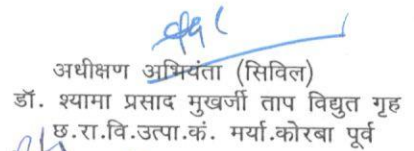 अधीक्षण अभियंता (सिविल)
डॉ. श्यामा प्रसाद मुखर्जी ताप विद्युत गृह
छ.रा.वि.उत्पा.कं. मर्या.कोरबा पूर्व